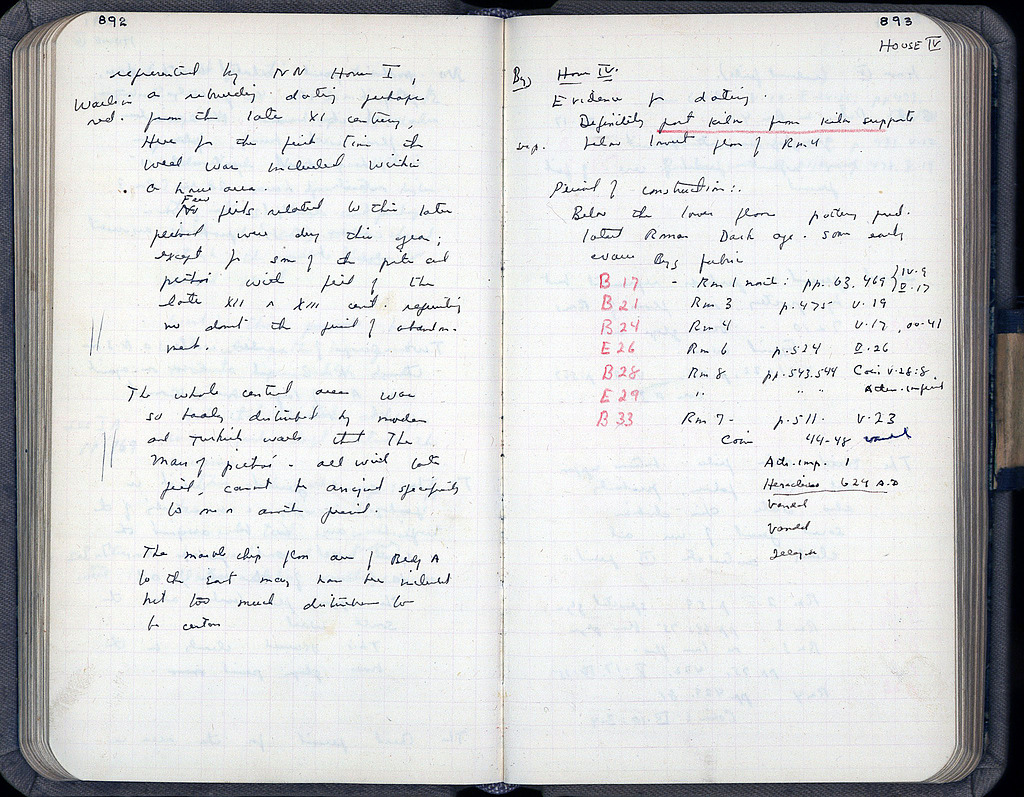 892
represented by NN House I,
a rebuilding dating perhaps
from the late XI century.
Here for the first time the
well was included within
a house area.
Few
finds related to this later
period were dug this year;
except for some of the pits and
pictures with finds of the
late XII or XIII cent. representing
no doubt the period of abandon-
ment.
The whole central area was
so badly disturbed by modern
and Turkish walls that the
mass of pottery - all with late
finds, cannot be assigned specifically
to one or another period.
The marble chip floor area of Bldg A
to the East may have been included
but too much disturbed to
be certain
893
HOUSE IV
Byz House IV.
Evidence for dating.
Definitely post kiln from kiln supports
below lowest floor of Rm 4
Period of construction:.
Below the lower floors pottery pred.
latest Roman Dark age. Some early
Byz fabric
B 17 - Rm 1 pp. 63, 469 { IV. 9
II. 17
B 21 Rm 3 p. 475 V. 19
B 24 Rm 4 V. 17, 00-41
E 26 Rm 6 p. 524 II. 26
B 28 Rm 8 pp. 543.544 Coin V-26:8
E 29 " " Ath. imperial
B 33 Rm 7 - p. 511 - V. 23
Coin 44-48 vandal
Ath. imp. 1
Heraclius 624 A.D
Vandal
Vandal